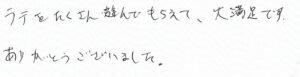 ラテをたくさん遊んでもらえて、大満足です。
ありがとうございました。